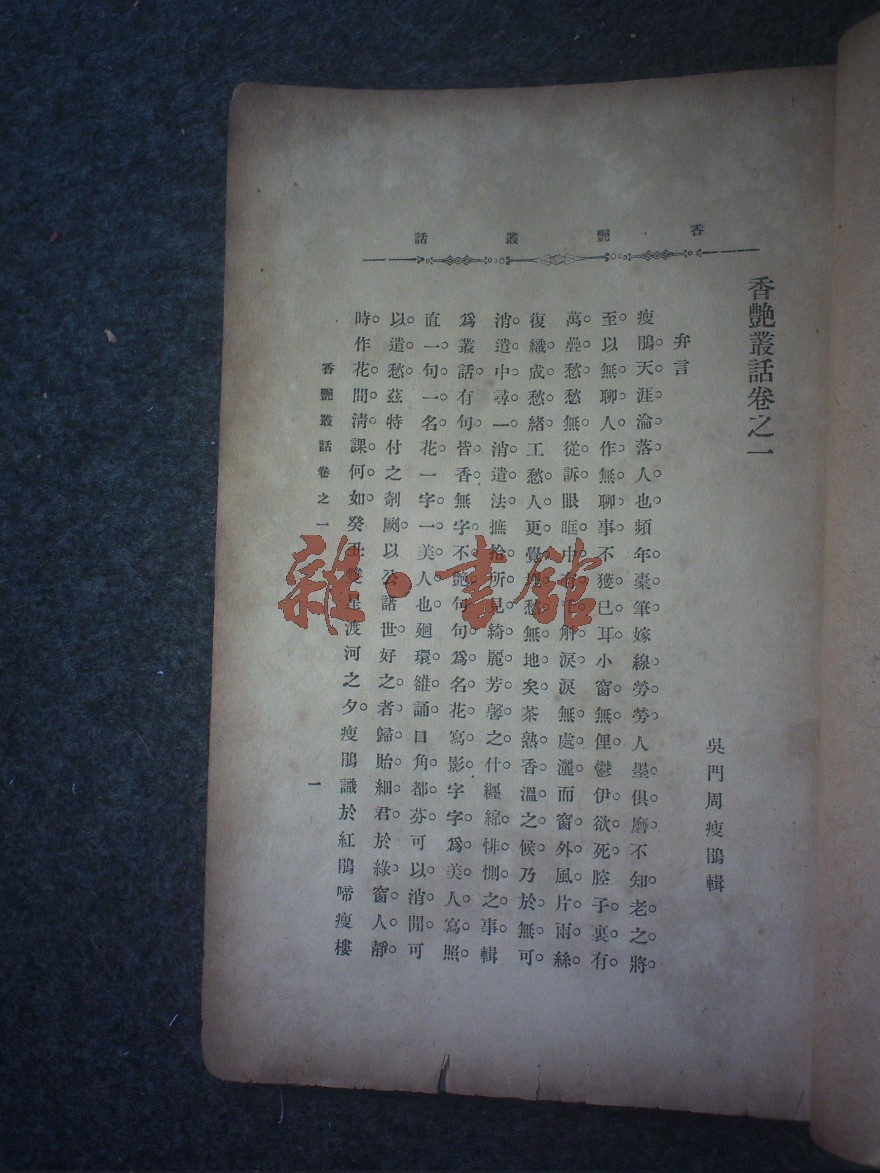 香艷叢話
香艷叢話卷之一
吳門周瘦鵑輯
弁言
瘦鵑。天涯淪落人也。頻年橐筆。嫁線勞勞。人墨俱磨。不知老之將
至。以無聊人。作無聊事。不獲已耳。小窗無俚。鬱伊欲死。腔子裏有
萬疊愁。愁無從訴。眼眶中有千斛淚。淚無處灑。而窗外風片雨絲。
復織成愁緒。工愁人更覺埋愁無地矣。茶熟香溫之候。乃於無可
消遣中。尋一消遣法。摭拾所見綺麗芳馨之什。纏綿悱惻之事。輯
爲叢話。有句皆香。無字不艷。句句爲名花寫影。字字爲美人寫照。
直一句一名花。一字一美人也。廻環雒誦。口角都芬。可以消閒。可
以遣愁。茲特付之剞劂。以公諸世。好之者歸貽細君。於綠窗人靜
時。作花間清課。何如。癸丑雙星渡河之夕。瘦鵑識於紅鵑啼瘦樓
香艷叢話卷之一
一
雜·書館